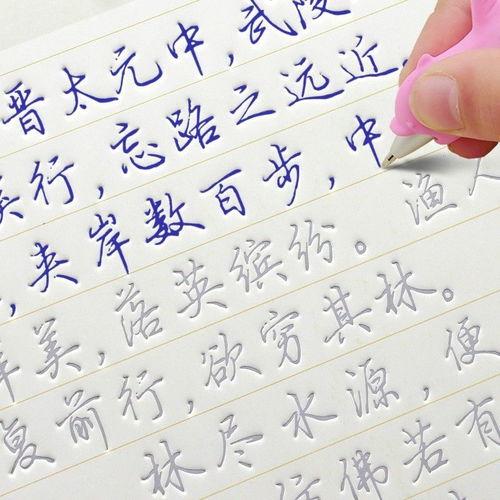 晋太元中,武陵
溪行,忘路之远近。
,夹岸数百步,中
鲜美,落英缤纷。渔人
复前行,欲穷其林。
林尽水源,便
佛若有